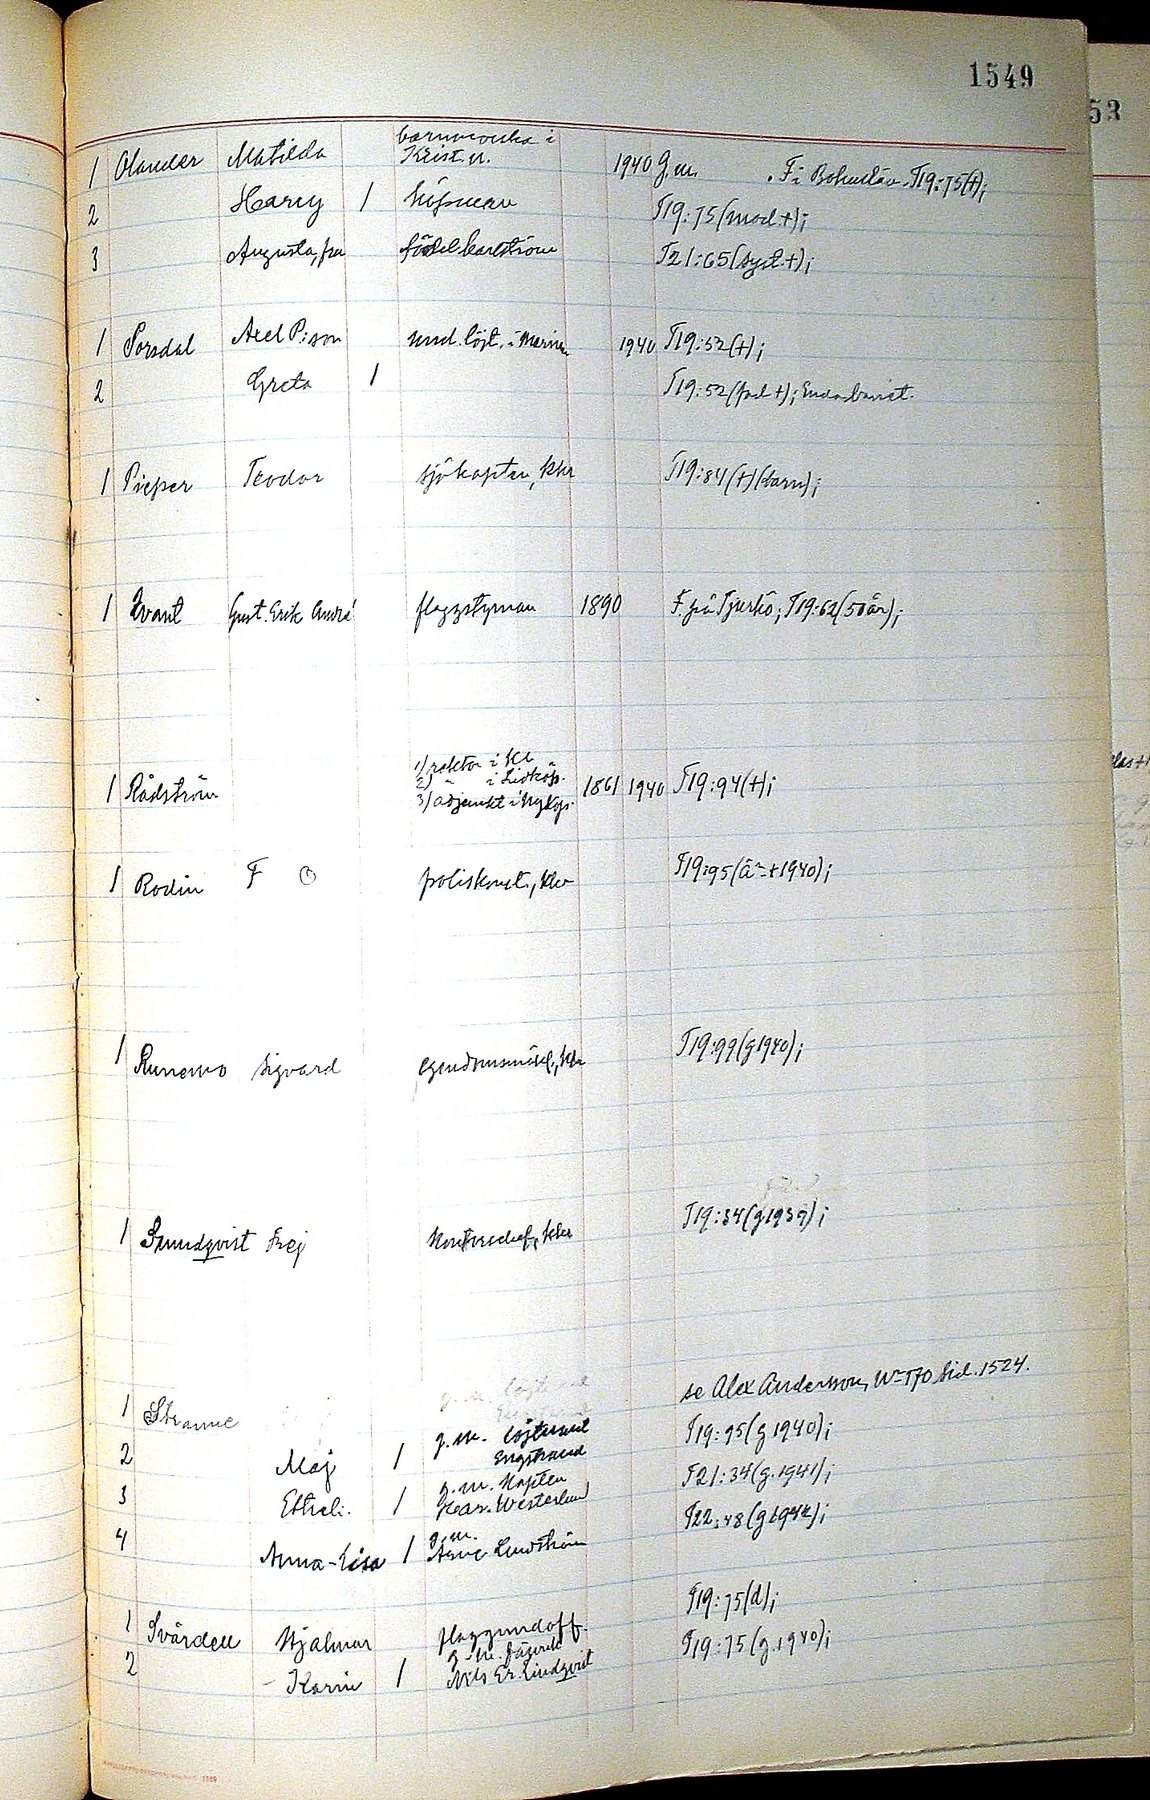 1549
53
barnmorska i
1 Olander Matilda Krist n. 1940 g.m. F i Bohuslän. T19:75(+);
2 Harry 1 T19:75(mod.+);
3 Augusta, fru född Carlström T21:65(syst.+);
1 Porsdal Axel P:son und. löjt. i Marinen 1940 T19:52(+);
2 Greta 1 T19:52(fad +); Enda barnet.
1 Pieper Teodor sjökapten, Kkr T19:84(+)(barn);
1 Qvant Gust. Erik André flaggstyrman 1890 F. på Tjurkö; T19:62(50 år);
1) rektor i Kl
2) " i Lidköp.
1 Rådström 3) adjunkt i Nyköp. 1861 1940 T19:94(+);
1 Rodin F O poliskonst., Kkr T19:95( +1940);
1 Runemo Sigvard egendomsmäkl., Kkr T19:99(g1940);
1 Sundqvist Frej Kontorschef, Kkr T19:34(g1939);
1 Stranne se Alex Andersson, N:o 170 Sid. 1524.
2 Maj 1 g.m. löjtnant Engstrand T19:95(g 1940);
3 1 g.m. Kapten Westerlund T21:34(g.1941);
4 Anna-Lisa 1 g.m. Arne Lindström T22:48(g1942);
1 Svärdell Hjalmar flaggundoff. T19:75(d);
2 - Karin 1 g.m. Nils Er. Lindqvist T19:75(g.1940);